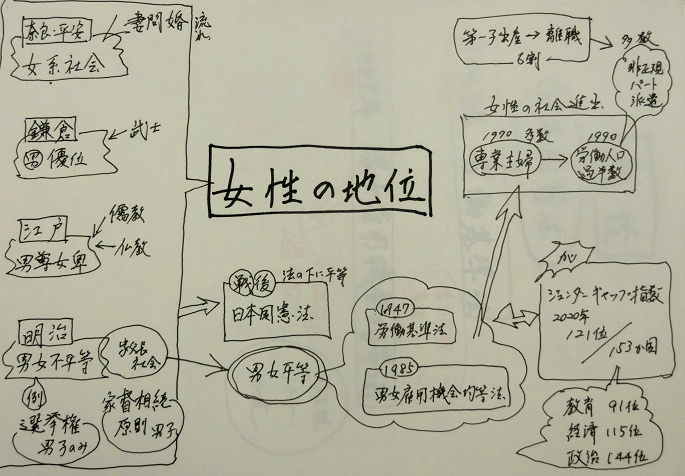 女性の地位
奈良・平安
妻問婚
流れ
女系社会
鎌倉
武士
男優位
江戸
儒教
仏教
男尊女卑
明治
男女不平等
家長
社会
例
選挙権
男子のみ
家督相続
原則 男子
戦後
法の下に平等
日本国憲法
男女平等
1947
労働基準法
1985
男女雇用機会均等法
第一子出産→離職
6割
多数
非正規
パート
派遣
女性の社会進出
1970 多数
専業主婦
1990
労働人口
過半数
ジェンダーギャップ指数
2020年
121位
/153か国
教育 91位
経済 115位
政治 144位